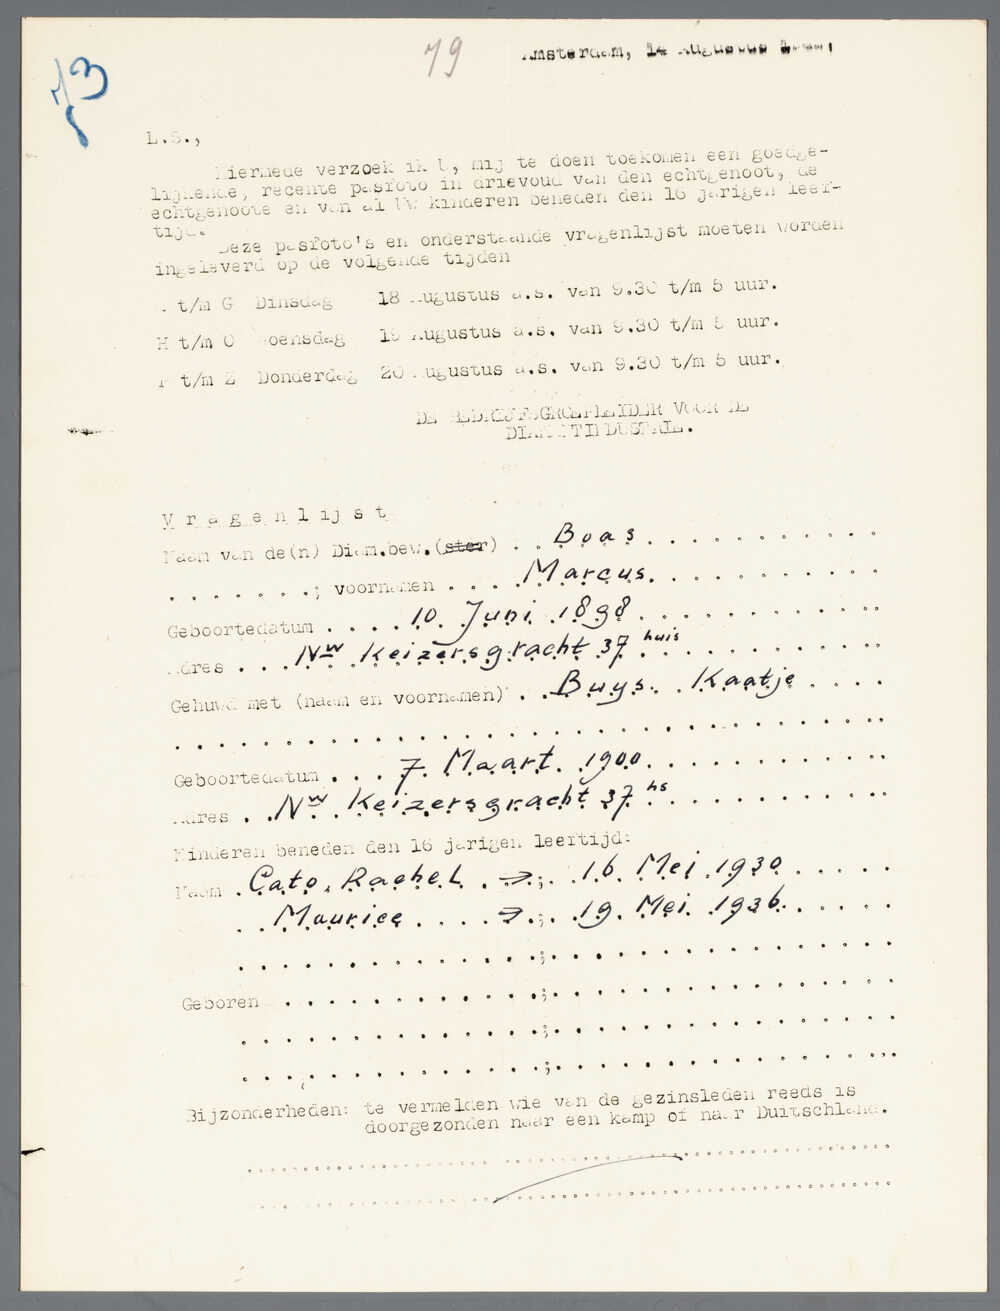 73
79
Amsterdam, 14 Augustus
L.S.,
Hiermede verzoek ik U, mij te doen toekomen een goedge-
lijkende, recente pasfoto in drievoud van den echtgenoot, de
echtgenoote en van al Uw kinderen beneden den 16 jarigen leef-
tijd.
Deze pasfoto's en onderstaande vragenlijst moeten worden
ingeleverd op de volgende tijden
t/m G Dinsdag 18 Augustus a.s. van 9.30 t/m 5 uur.
H t/m O Woensdag 19 Augustus a.s. van 9.30 t/m 5 uur.
P t/m Z Donderdag 20 Augustus a.s. van 9.30 t/m 5 uur.
DE BEDRIJFSGROEPLEIDER VOOR DE
DIAMANTINDUSTRIE.
Vragenlijst
Naam van de(n) Diam.bew.(ster) . . Boas . . . . . . . . . . .
. . . . . . . ; voornamen . . . . Marcus. . . . . . . . . . .
Geboortedatum . . . . 10 Juni 1898 . . . . . . . . .
Adres . . . Nw Keizersgracht 37 huis . . . . . . . . .
Gehuwd met (naam en voornamen) . . Buys. Kaatje . . . .
. . . . . . . . . . . . . . . . . . . . . . . . .
Geboortedatum . . . 7 Maart 1900 . . . . . . . . .
Adres . . Nw Keizersgracht 37 hs . . . . . . . .
Kinderen beneden den 16 jarigen leertijd:
Naam . Cato, Rachel . → ; . 16 Mei 1930 . . . . .
. . Maurice . . . . → . ; . 19 Mei 1936 . . . . .
. . . . . . . . . . . . . . ; . . . . . . . . . . . . . . . .
Geboren . . . . . . . . . . . . ; . . . . . . . . . . . . . . . .
. . . . . . . . . . . . . . ; . . . . . . . . . . . . . . . .
. . . . . . . . . . . . . . ; . . . . . . . . . . . . . . . .
Bijzonderheden: te vermelden wie van de gezinsleden reeds is
doorgezonden naar een kamp of naar Duitschland.